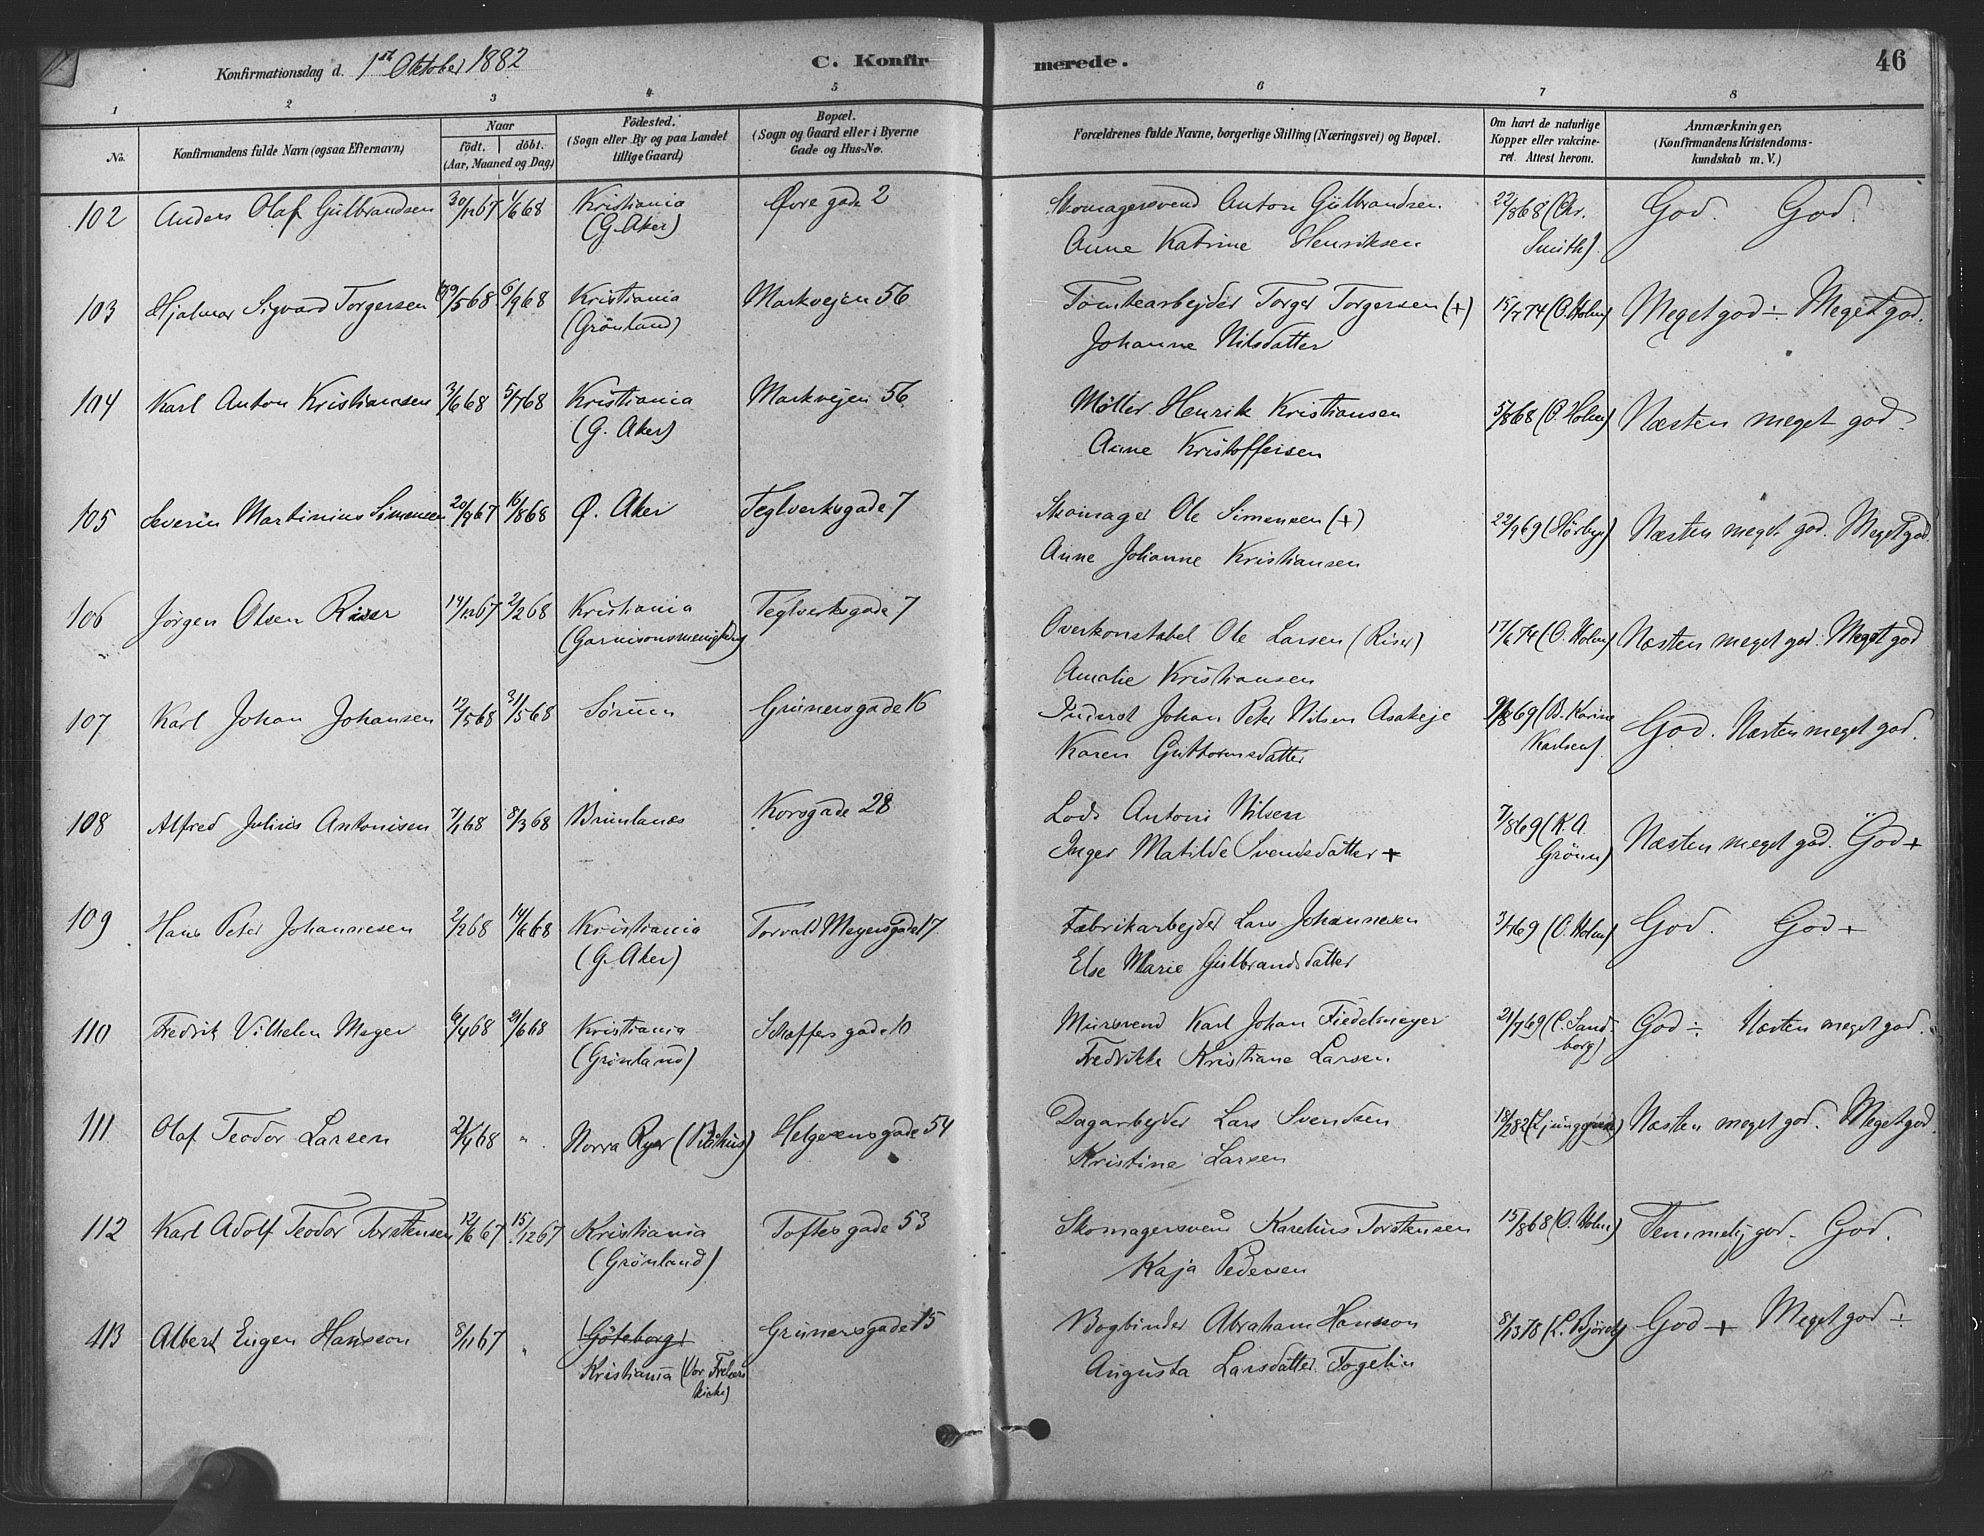 Konfirmationsdag d. 1st Oktober 1882
C. Konfirmerede.
46
1 2 3 4 5 6 7 8
No.
Konfirmandens fulde Navn (ogsaa Efternavn)
Naar
født. døbt.
(Aar, Maaned og Dag)
Fødested.
(Sogn eller By og paa Landet
tillige Gaard)
Bopæl.
(Sogn og Gaard eller i Byerne
Gade og Hus-No.
Forældrenes fulde Navne, borgerlige Stilling (Næringsvei) og Bopæl.
Om havt de naturlige
Kopper eller vakcine-
ret. Attest herom.
Anmærkninger.
(Konfirmandens Kristendoms-
kundskab m. V.)
102 Anders Olaf Gulbrandsen 30/12 67 1/6 68 Kristiania Øvre gade 2 Skomagersvend Anton Gulbrandsen 22/8 68 (Chr. God. God.
(G. Aker) Anne Katrine Henriksen Smith)
103 Hjalmar Sigvard Torgersen 19/5 68 6/9 68 Kristiania Markvejen 56 Tomtearbejder Torger Torgersen (+) 15/7 74 (O. Holm) Meget god ÷ Meget god.
(Grönland) Johanne Nilsdatter
104 Karl Anton Kristiansen 3/6 68 5/7 68 Kristiania Markvejen 56 Møller Henrik Kristiansen 5/8 68 (O. Holm) Næsten meget god.
(G. Aker) Anne Kristoffersen
105 Severin Martinius Simensen 20/9 67 16/8 68 Ø. Aker Teglverksgade 7 Skomager Ole Simensen (+) 22/9 69 (Hørbye) Næsten meget god. Meget god
Anne Johanne Kristiansen
106 Jörgen Olsen Riser 14/12 67 2/2 68 Kristiania Teglverksgade 7 Overkonstabel Ole Larsen (Riser) 17/6 74 (O. Holm) Næsten meget god. Meget god
(Garnisonsmenighed) Amalie Kristiansen
107 Karl Johan Johansen 12/5 68 31/5 68 Sörum Grünersgade 16 Inderst Johan Peter Nilsen Asakeje 9/8 69 (B. Karine God. Næsten meget god.
Karen Guttormsdatter Karlsen)
108 Alfred Julius Antonisen 7/1 68 8/3 68 Brunlanæs Korsgade 28 Lods Antoni Nilsen 7/8 69 (K. A. Næsten meget god. God +
Inger Matilde Svendsdatter + Grönn)
109 Hans Peter Johannesen 2/2 68 14/6 68 Kristiania Torvald Meyersgade 17 Fabrikarbejder Lars Johannesen 3/7 69 (O. Holm) God. God +
(G. Aker) Else Marie Gulbrandsdatter
110 Fredrik Vilhelm Meyer 6/4 68 21/6 68 Kristiania Schoffers gade 10 Mursvend Karl Johan Fiedelmeyer 21/7 69 (C. Sand- God ÷ Næsten meget god.
(Grönland) Fredrikke Kristiane Larsen borg)
111 Olaf Teodor Larsen 21/4 68 " Norra Ryr (Båhus) Helgesensgade 54 Dagarbejder Lars Svendsen 18/2 82 (Ljunggren) Næsten meget god. Meget god.
Kristine Larsen
112 Karl Adolf Teodor Torstensen 12/6 67 15/12 67 Kristiania Toftes gade 53 Skomagersvend Karelius Torstensen 15/8 68 (O. Holm) Temmelig god. God.
(Grønland) Kaja Pedersen
113 Albert Eugen Hansson 8/11 67 " (Göteborg) Grünersgade 15 Bogbinder Abraham Hansson 8/1 78 God + Meget god ÷
Kristiania (Vor Frelsers Augusta Larsdatter Fogelin
kirke)